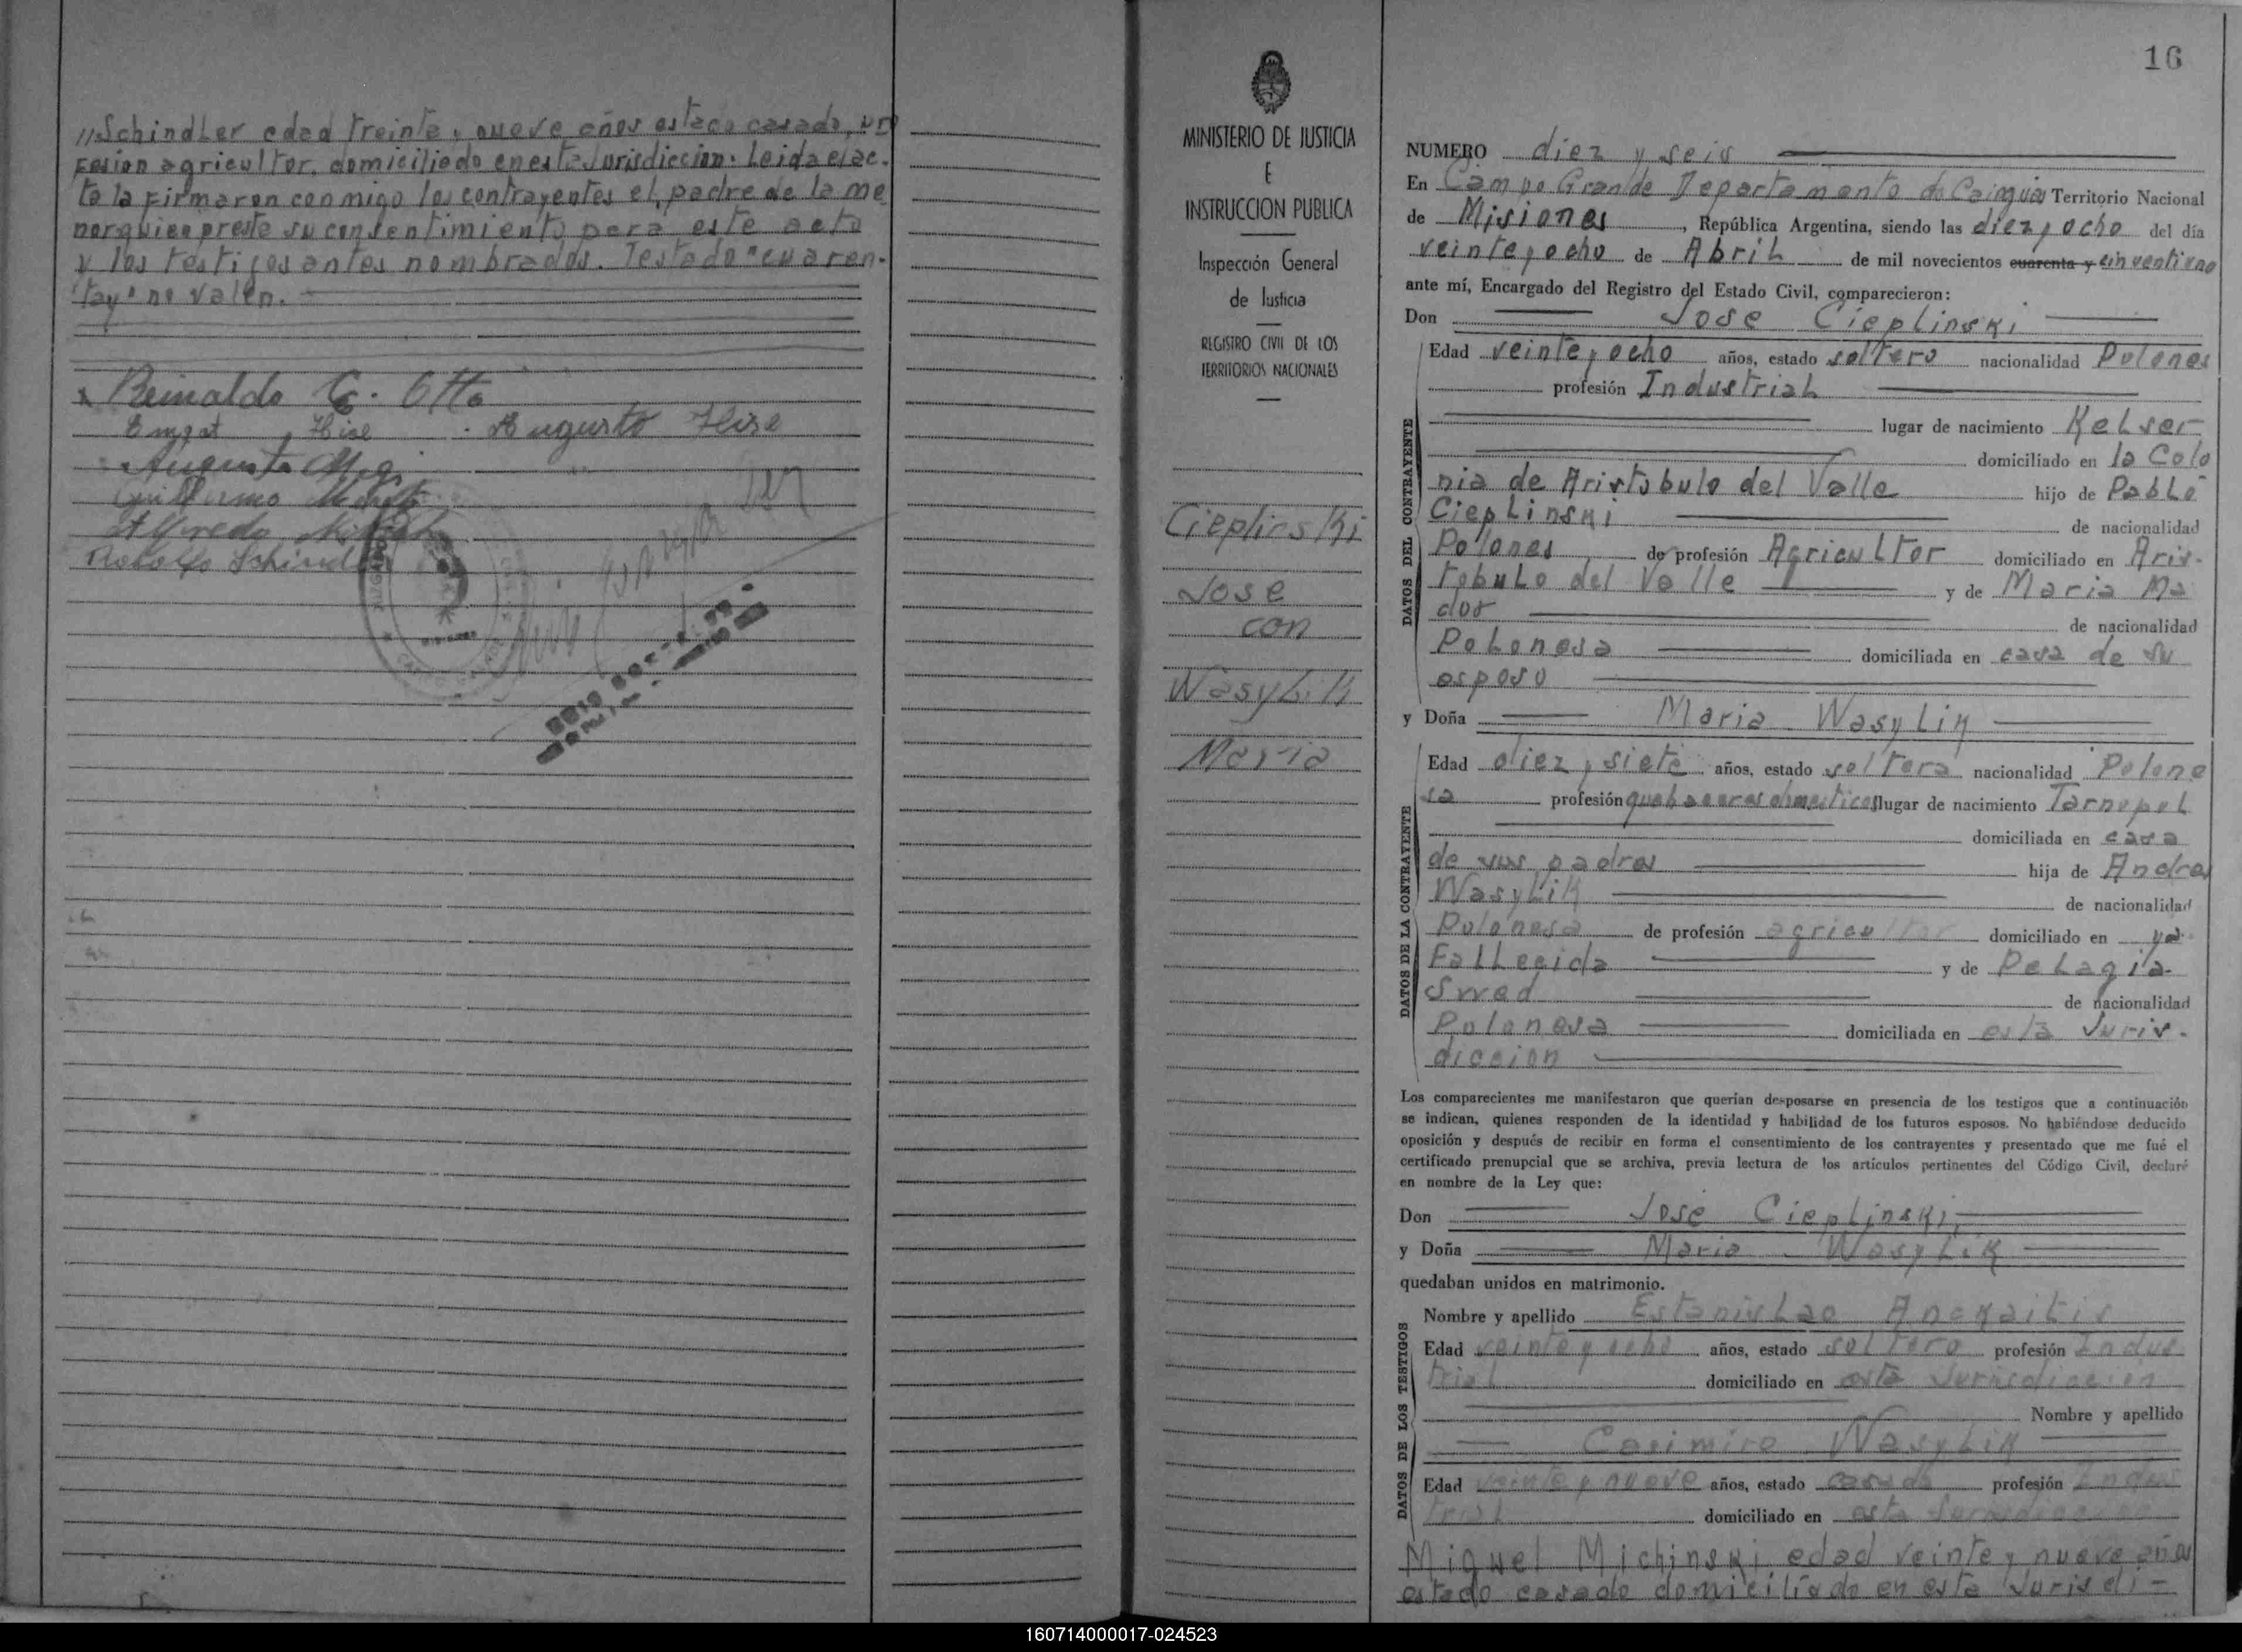 //Schindler edad treinta y nueve años estado casado, pro
fesion agricultor, domiciliado en esta Jurisdiccion. Leida el ac-
ta la firmaron conmigo los contrayentes el padre de la me
nor quien preste su consentimiento para este acto
y los testigos antes nombrados. Testado "cuaren-
tay" no valen.
Reinaldo G. Otto
Hise Augusto Hise
Augusta
Guillermo
Alfredo
Rodolfo Schindler
MINISTERIO DE JUSTICIA
E
INSTRUCCION PUBLICA
Inspección General
de Justicia
REGISTRO CIVIL DE LOS
TERRITORIOS NACIONALES
Cieplinski
José
con
Wasylik
Maria
16
NUMERO diez y seis
En Campo Grande Departamento de Cainguas Territorio Nacional
de Misiones, República Argentina, siendo las diez y ocho del día
veinte y ocho de Abril de mil novecientos cuarenta y cinventiuno
ante mí, Encargado del Registro del Estado Civil, comparecieron:
Don Jose Cieplinski
DATOS DEL CONTRAYENTE
Edad veinte y ocho años, estado soltero nacionalidad Polones
profesión Industrial
lugar de nacimiento Kelser
domiciliado en la Colo
nia de Aristobulo del Valle hijo de Pablo
Cieplinski de nacionalidad
Polones de profesión Agricultor domiciliado en Aris-
tobulo del Valle y de Maria Ma
dos de nacionalidad
Polonesa domiciliada en casa de su
esposo
y Doña Maria Wasylik
DATOS DE LA CONTRAYENTE
Edad diez y siete años, estado soltera nacionalidad Polone
sa profesión quehaceres domesticos lugar de nacimiento Tarnopol
domiciliada en casa
de sus padres hija de Andres
Wasylik de nacionalidad
Polonesa de profesión agricultor domiciliado en ya
Fallecida y de Pelagia
Swed de nacionalidad
Polonesa domiciliada en esta Juris-
diccion
Los comparecientes me manifestaron que querían desposarse en presencia de los testigos que a continuación
se indican, quienes responden de la identidad y habilidad de los futuros esposos. No habiéndose deducido
oposición y después de recibir en forma el consentimiento de los contrayentes y presentado que me fué el
certificado prenupcial que se archiva, previa lectura de los artículos pertinentes del Código Civil, declaré
en nombre de la Ley que:
Don José Cieplinski,
y Doña Maria Wasylik
quedaban unidos en matrimonio.
DATOS DE LOS TESTIGOS
Nombre y apellido Estanislao Anckaitis
Edad veinte y ocho años, estado soltero profesión Indus
trial domiciliado en esta Jurisdiccion
Nombre y apellido
Casimiro Wasylik
Edad veinte y nueve años, estado casado profesión Indus
trial domiciliado en esta Jurisdiccion
Miguel Michinski edad veinte y nueve años
estado casado domiciliado en esta Jurisdi-
160714000017-024523